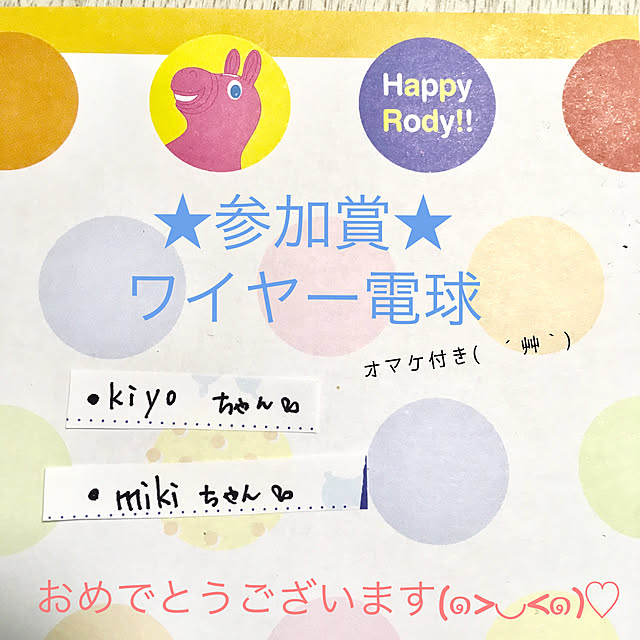 Happy
Rody!!
★参加賞★
ワイヤー電球
オマケ付き( ´艸｀)
•kiyo ちゃん♡
• miki ちゃん♡
おめでとうございます(๑>◡<๑)♡